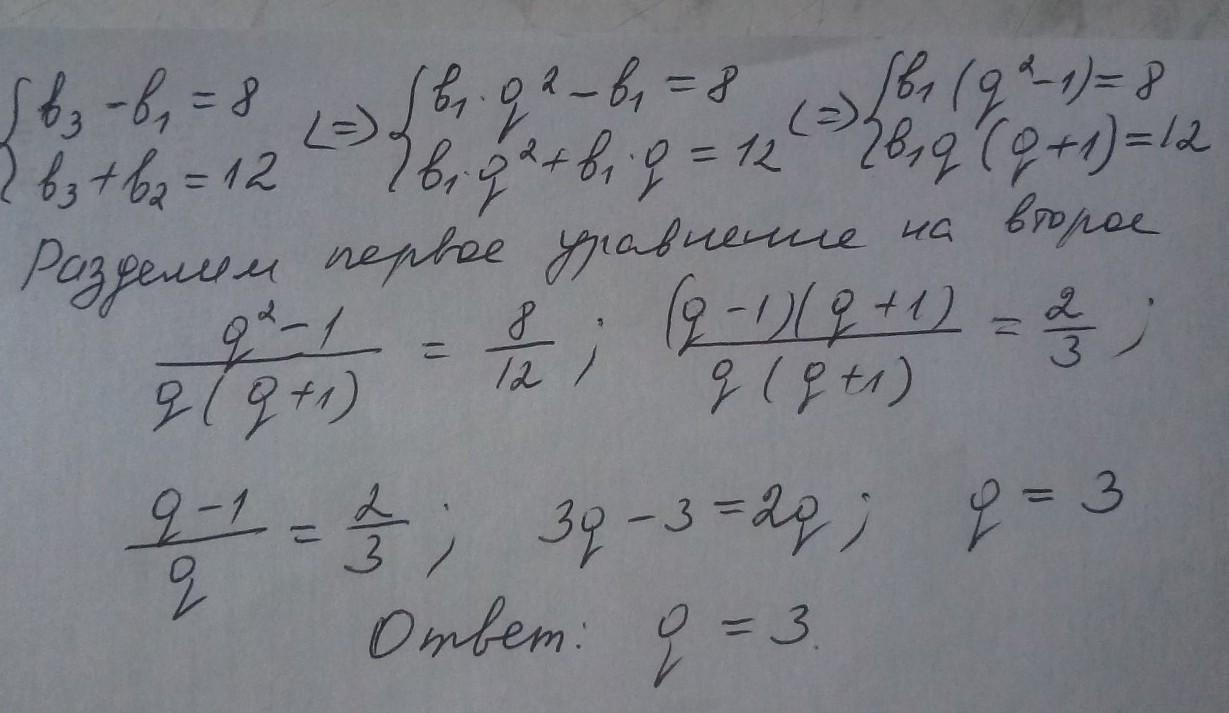 { b₃ - b₁ = 8 <=> { b₁ · q² - b₁ = 8 <=> { b₁ (q² - 1) = 8
{ b₃ + b₂ = 12 { b₁ · q² + b₁ · q = 12 { b₁q (q + 1) = 12
Разделим первое уравнение на второе
(q² - 1) / (q (q + 1)) = 8/12 ; ((q - 1)(q + 1)) / (q (q + 1)) = 2/3 ;
(q - 1) / q = 2/3 ; 3q - 3 = 2q ; q = 3
Ответ: q = 3.